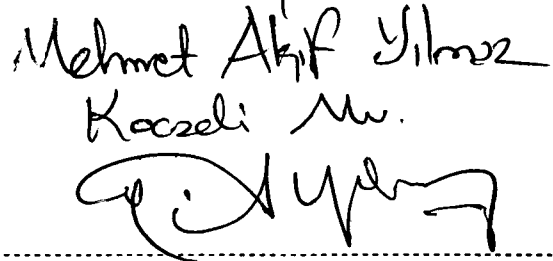 Mehmet Akif Yılmaz
Kocaeli Mv.